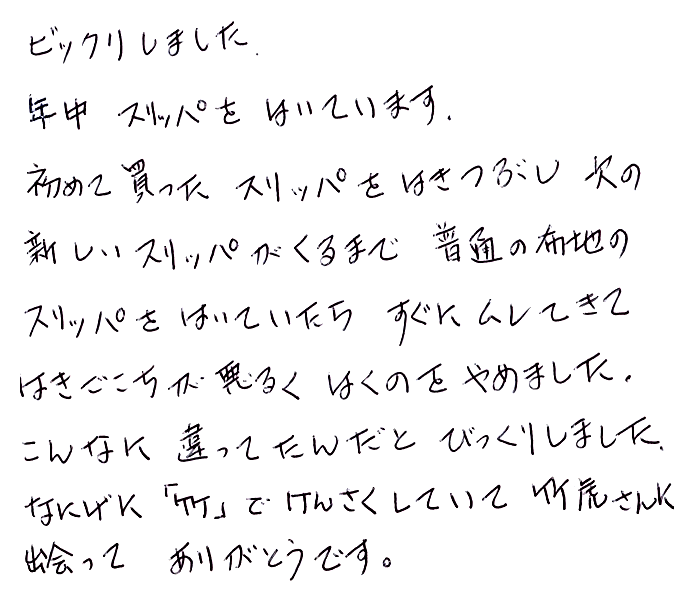 ビックリしました.
年中 スリッパを はいています.
初めて買った スリッパを はきつぶし 次の
新しいスリッパがくるまで 普通の布地の
スリッパを はいていたら すぐにムレてきて
はきごこちが悪るく はくのをやめました.
こんなに 違ってたんだと びっくりしました.
なにげに「竹」で けんさくしていて 竹虎さんに
出会って ありがとうです。